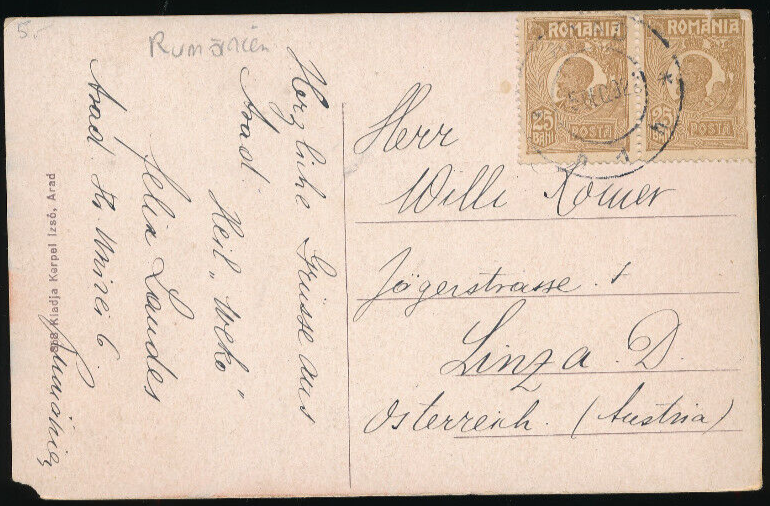 5.-
Rumänien
Herzliche Grüsse aus
Arad.
Heil "Weko"
Felix Landes
Arad. Str. Unirei 6
Rumänien
Kiadja Kerpel Izsó, Arad
ROMANIA
25
BANI
POSTA
ROMANIA
25
BANI
POSTA
Herr
Willi Romer
Jägerstrasse. 1
Linz a. D.
Österreich. (Austria)